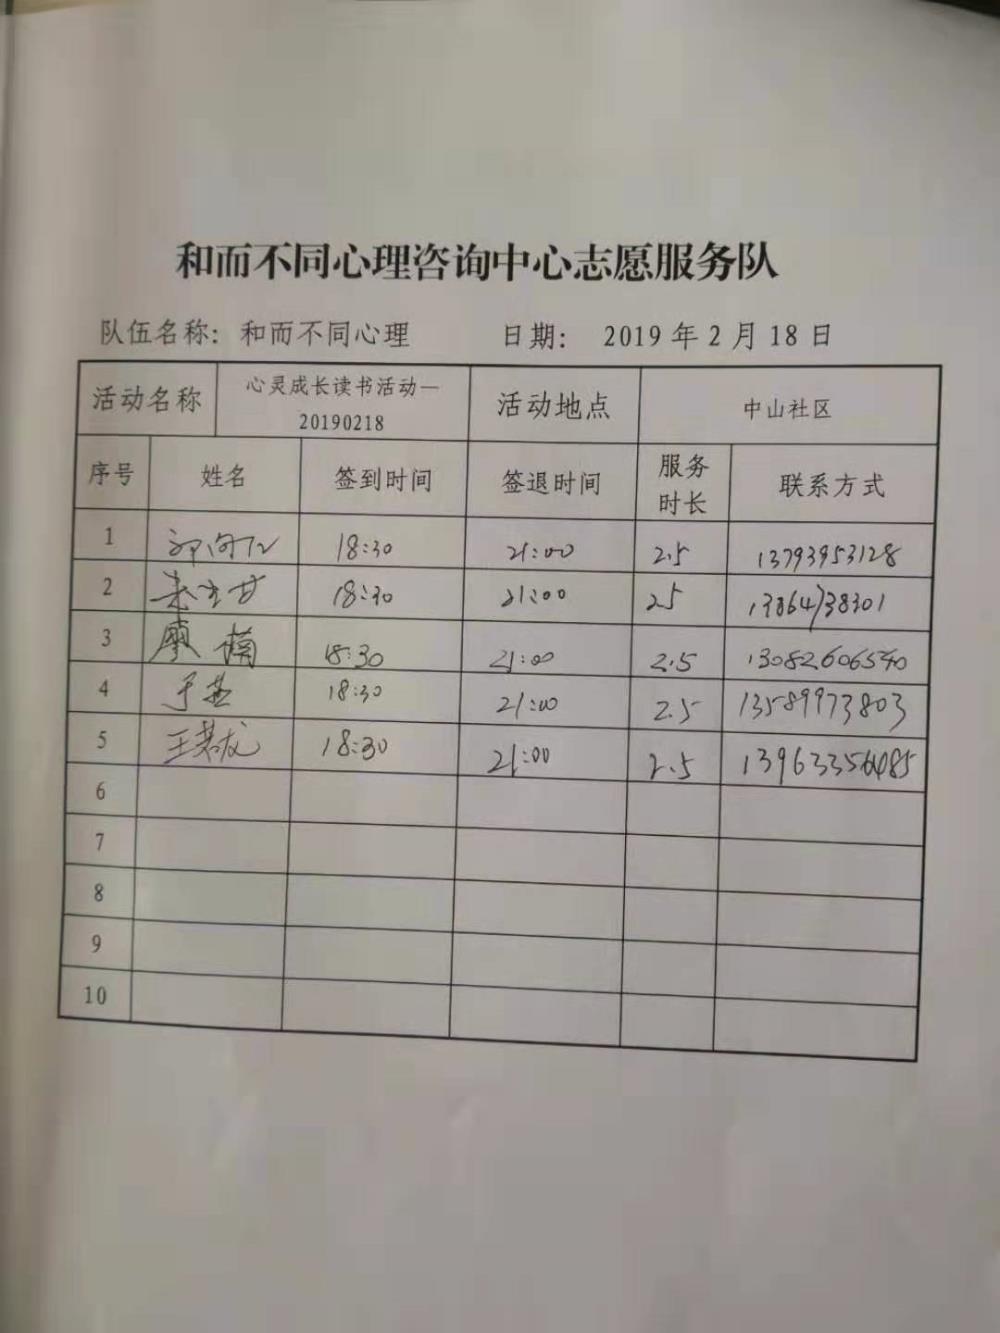 和而不同心理咨询中心志愿服务队
队伍名称：和而不同心理 日期： 2019 年 2 月 18 日
活动名称 心灵成长读书活动—20190218 活动地点 中山社区
序号 姓名 签到时间 签退时间 服务时长 联系方式
1 18:30 21:00 2.5 13793953128
2 18:30 21:00 25
3 廖楠 18:30 21:00 2.5 13082606540
4 于燕 18:30 21:00 2.5 13589973803
5 18:30 21:00 2.5
6
7
8
9
10